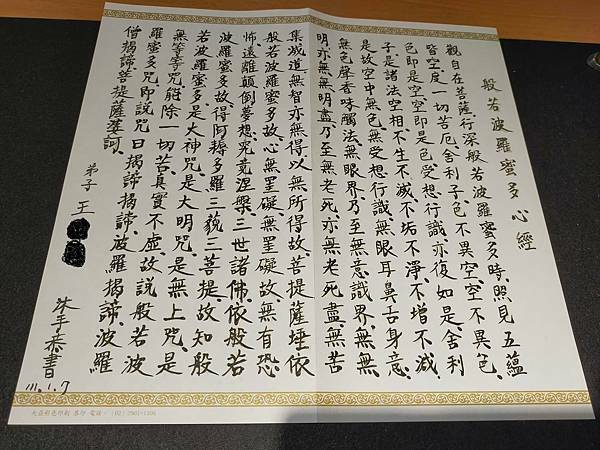 般若波羅蜜多心經
觀自在菩薩、行深般若波羅蜜多時、照見五蘊
皆空、度一切苦厄、舍利子、色不異空、空不異色、
色即是空、空即是色、受想行識、亦復如是、舍利
子、是諸法空相、不生不滅、不垢不淨、不增不減、
是故空中無色、無受想行識、無眼耳鼻舌身意、
無色聲香味觸法、無眼界、乃至無意識界、無無
明、亦無無明盡、乃至無老死、亦無老死盡、無苦
集滅道、無智亦無得、以無所得故、菩提薩埵、依
般若波羅蜜多故、心無罣礙、無罣礙故、無有恐
怖、遠離顛倒夢想、究竟涅槃、三世諸佛、依般若
波羅蜜多故、得阿耨多羅三藐三菩提、故知般
若波羅蜜多、是大神咒、是大明咒、是無上咒、是
無等等咒、能除一切苦、真實不虛、故說般若波
羅蜜多咒、即說咒曰、揭諦揭諦、波羅揭諦、波羅
僧揭諦、菩提薩婆訶、
弟子 王
沐手恭書